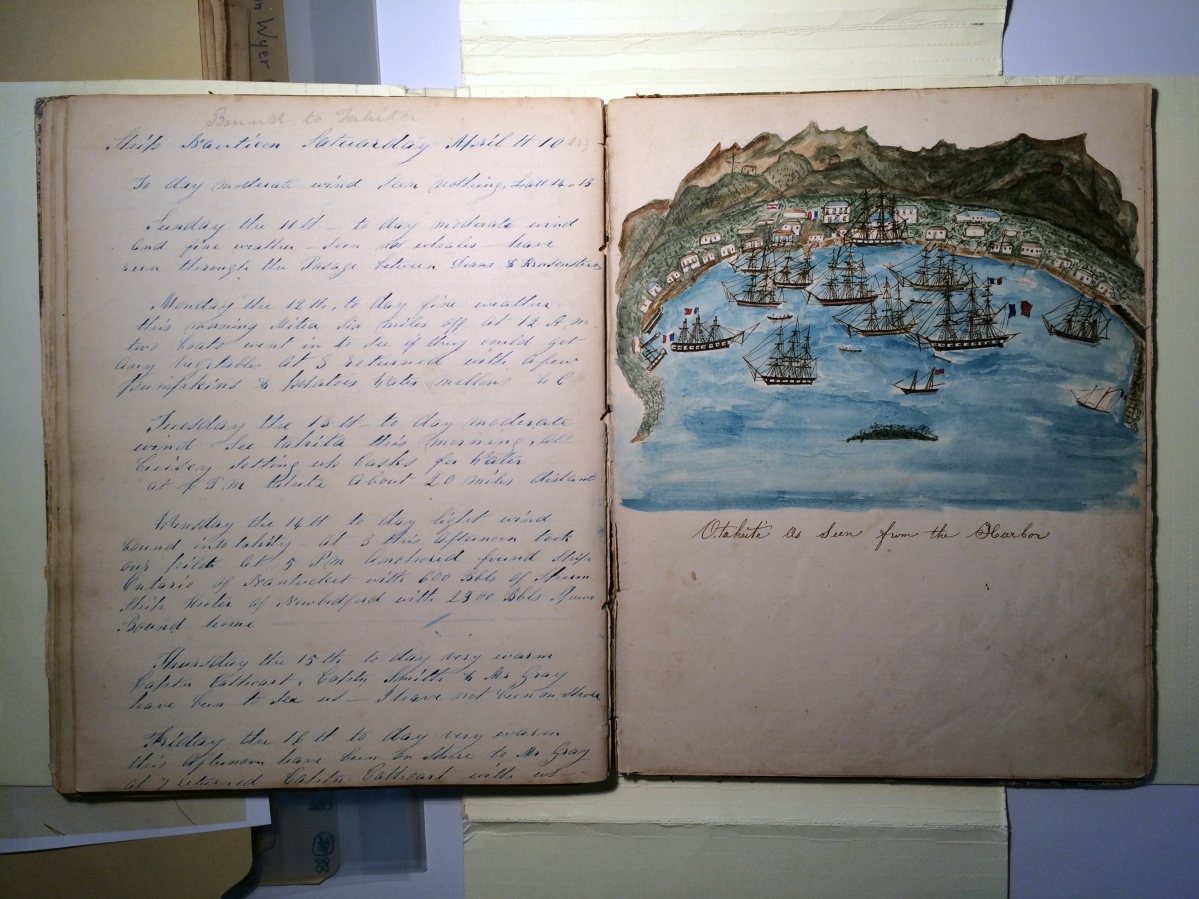 in Wyer
Bound to Tahita
Ship Nauticon Saturday April th 10
To day moderate wind Seen nothing, Latt 14 . 13
Sunday the 11th - to day moderate wind
and fine weather - Seen no whales - have
run through the Pasage between Deans & Krusensterns
Monday the 12th, to day fine weather
this morning Mitea Six miles off at 12 A.m.
two boats went in to See if they could get
any vegetables at 3 returned with a few
pumpkins & potatoes Water mellons & C
Tuesday the 13th - to day moderate
wind See tahita this morning, all
buisey Setting up Casks for Water
at P.M tahita about 20 miles distant
Wensday the 14th to day light wind
bound into tahity at 3 this afternoon took
our pilot at 5 P m anchored found Ship
Ontario of Nantucket with 600 bbls of Sperm
Ship of Newbedford with 2300 bbls Sperm
Bound home
Thursday the 15th, to day very warm
Captn Cathcart, Captn Smith & Mr Gray
have been to See us - I have not been on Shore
Friday the 16th to day very warm
this afternoon have been on Shore to Mr Gray
at 7 returned Captn Cathcart with us -
Otaheite as Seen from the Harbor
88